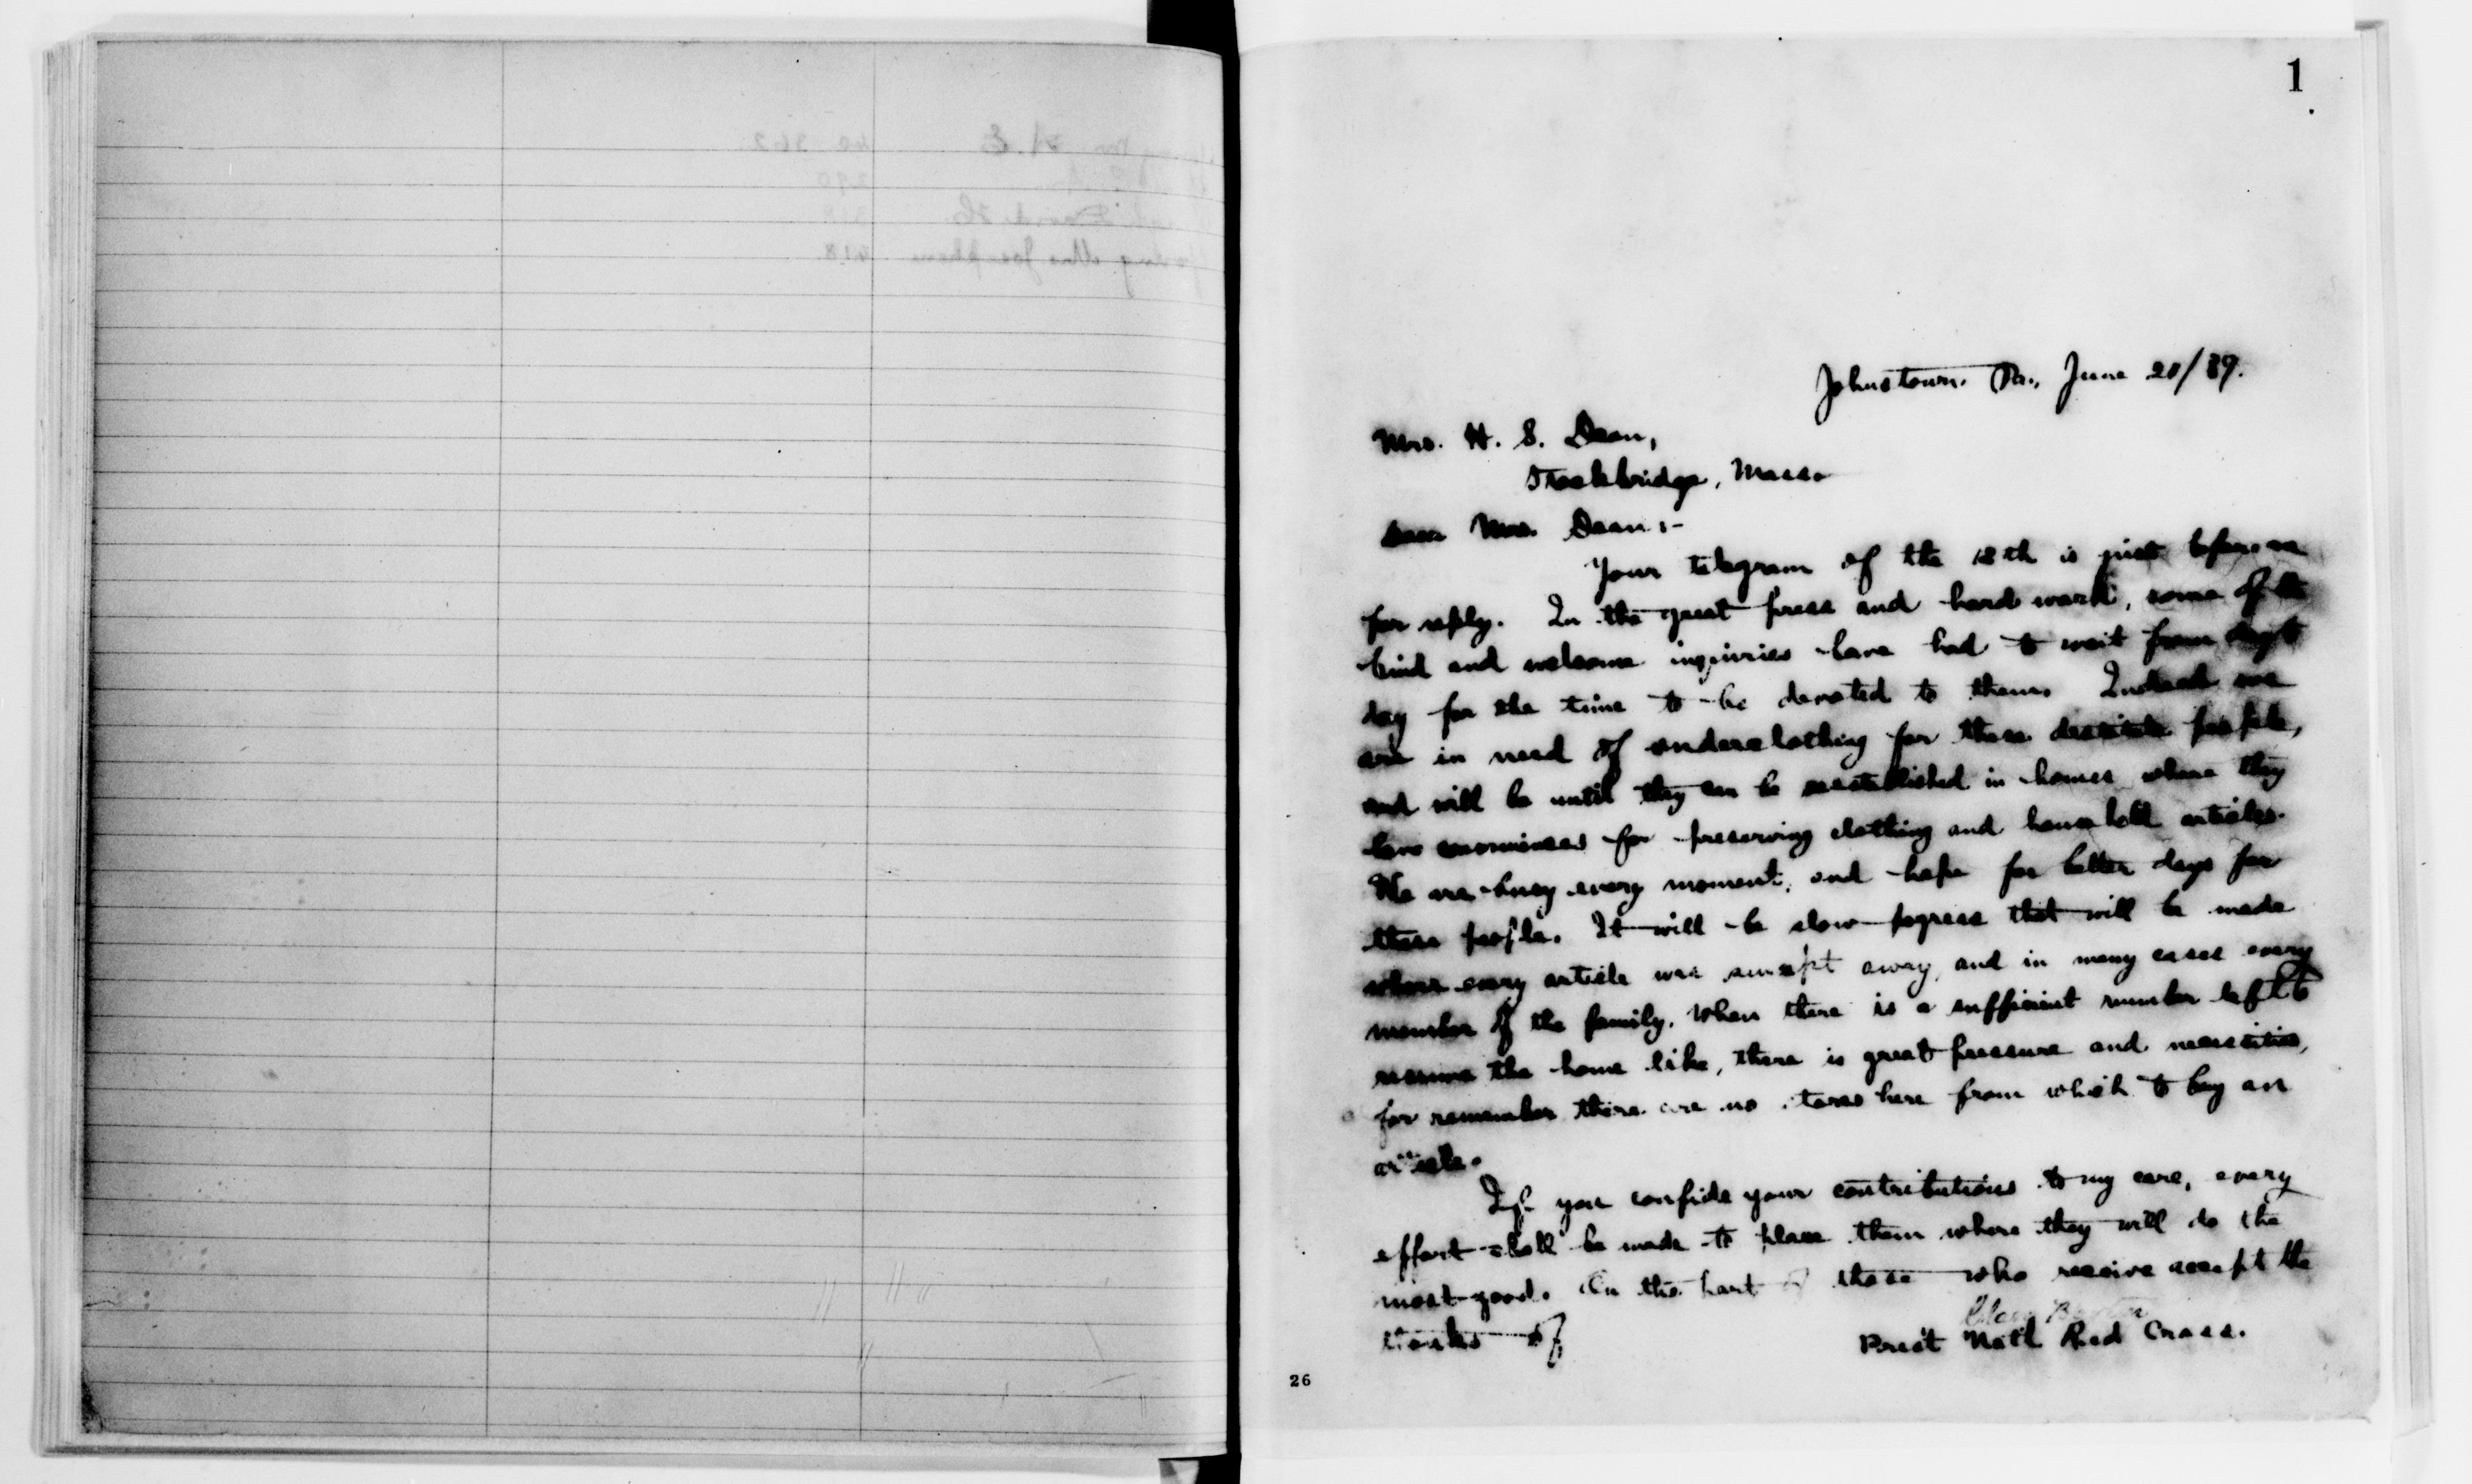 1
Johnstown. Pa., June 20/89.
Mrs. H. S. Dean,
Stockbridge, Mass.
Dear Mrs. Dean:-
Your telegram of the 18th is just before me
for reply. In the great press and hard work, some of the
kind and welcome inquiries have had to wait from day to
day for the time to be devoted to them. Indeed we
are in need of underclothing for these destitute people,
and will be until they can be reestablished in homes where they
have for preserving clothing and household articles.
We are busy every moment, and hope for better days for
these people. It will be slow progress that will be made
where every article was swept away, and in many cases every
member of the family. When there is a sufficient number left to
resume the home life, there is great pressure and necessities,
for remember there are no stores here from which to buy an
article.
If you confide your contributions to my care, every
effort shall be made to place them where they will do the
most good. On the part of those who receive accept the
thanks of
Clara Barton
Pres't Nat'l Red Cross.
26